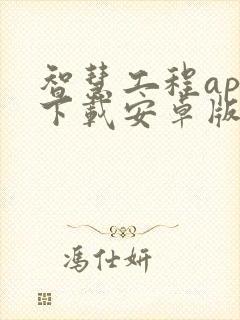 智慧工程ap
下载安卓版
冯仕妍